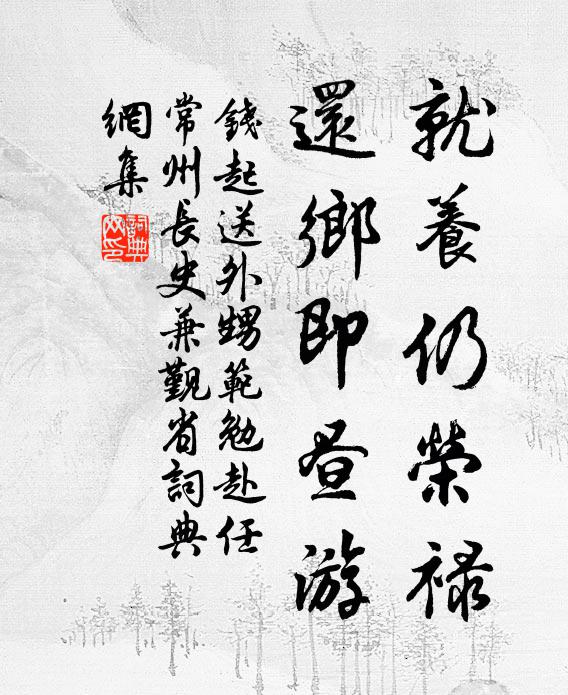 就養仍榮祿
還鄉即晝游
錢起送外甥範勉赴任
常州長史兼覲省詞典
網集
詞典
网印